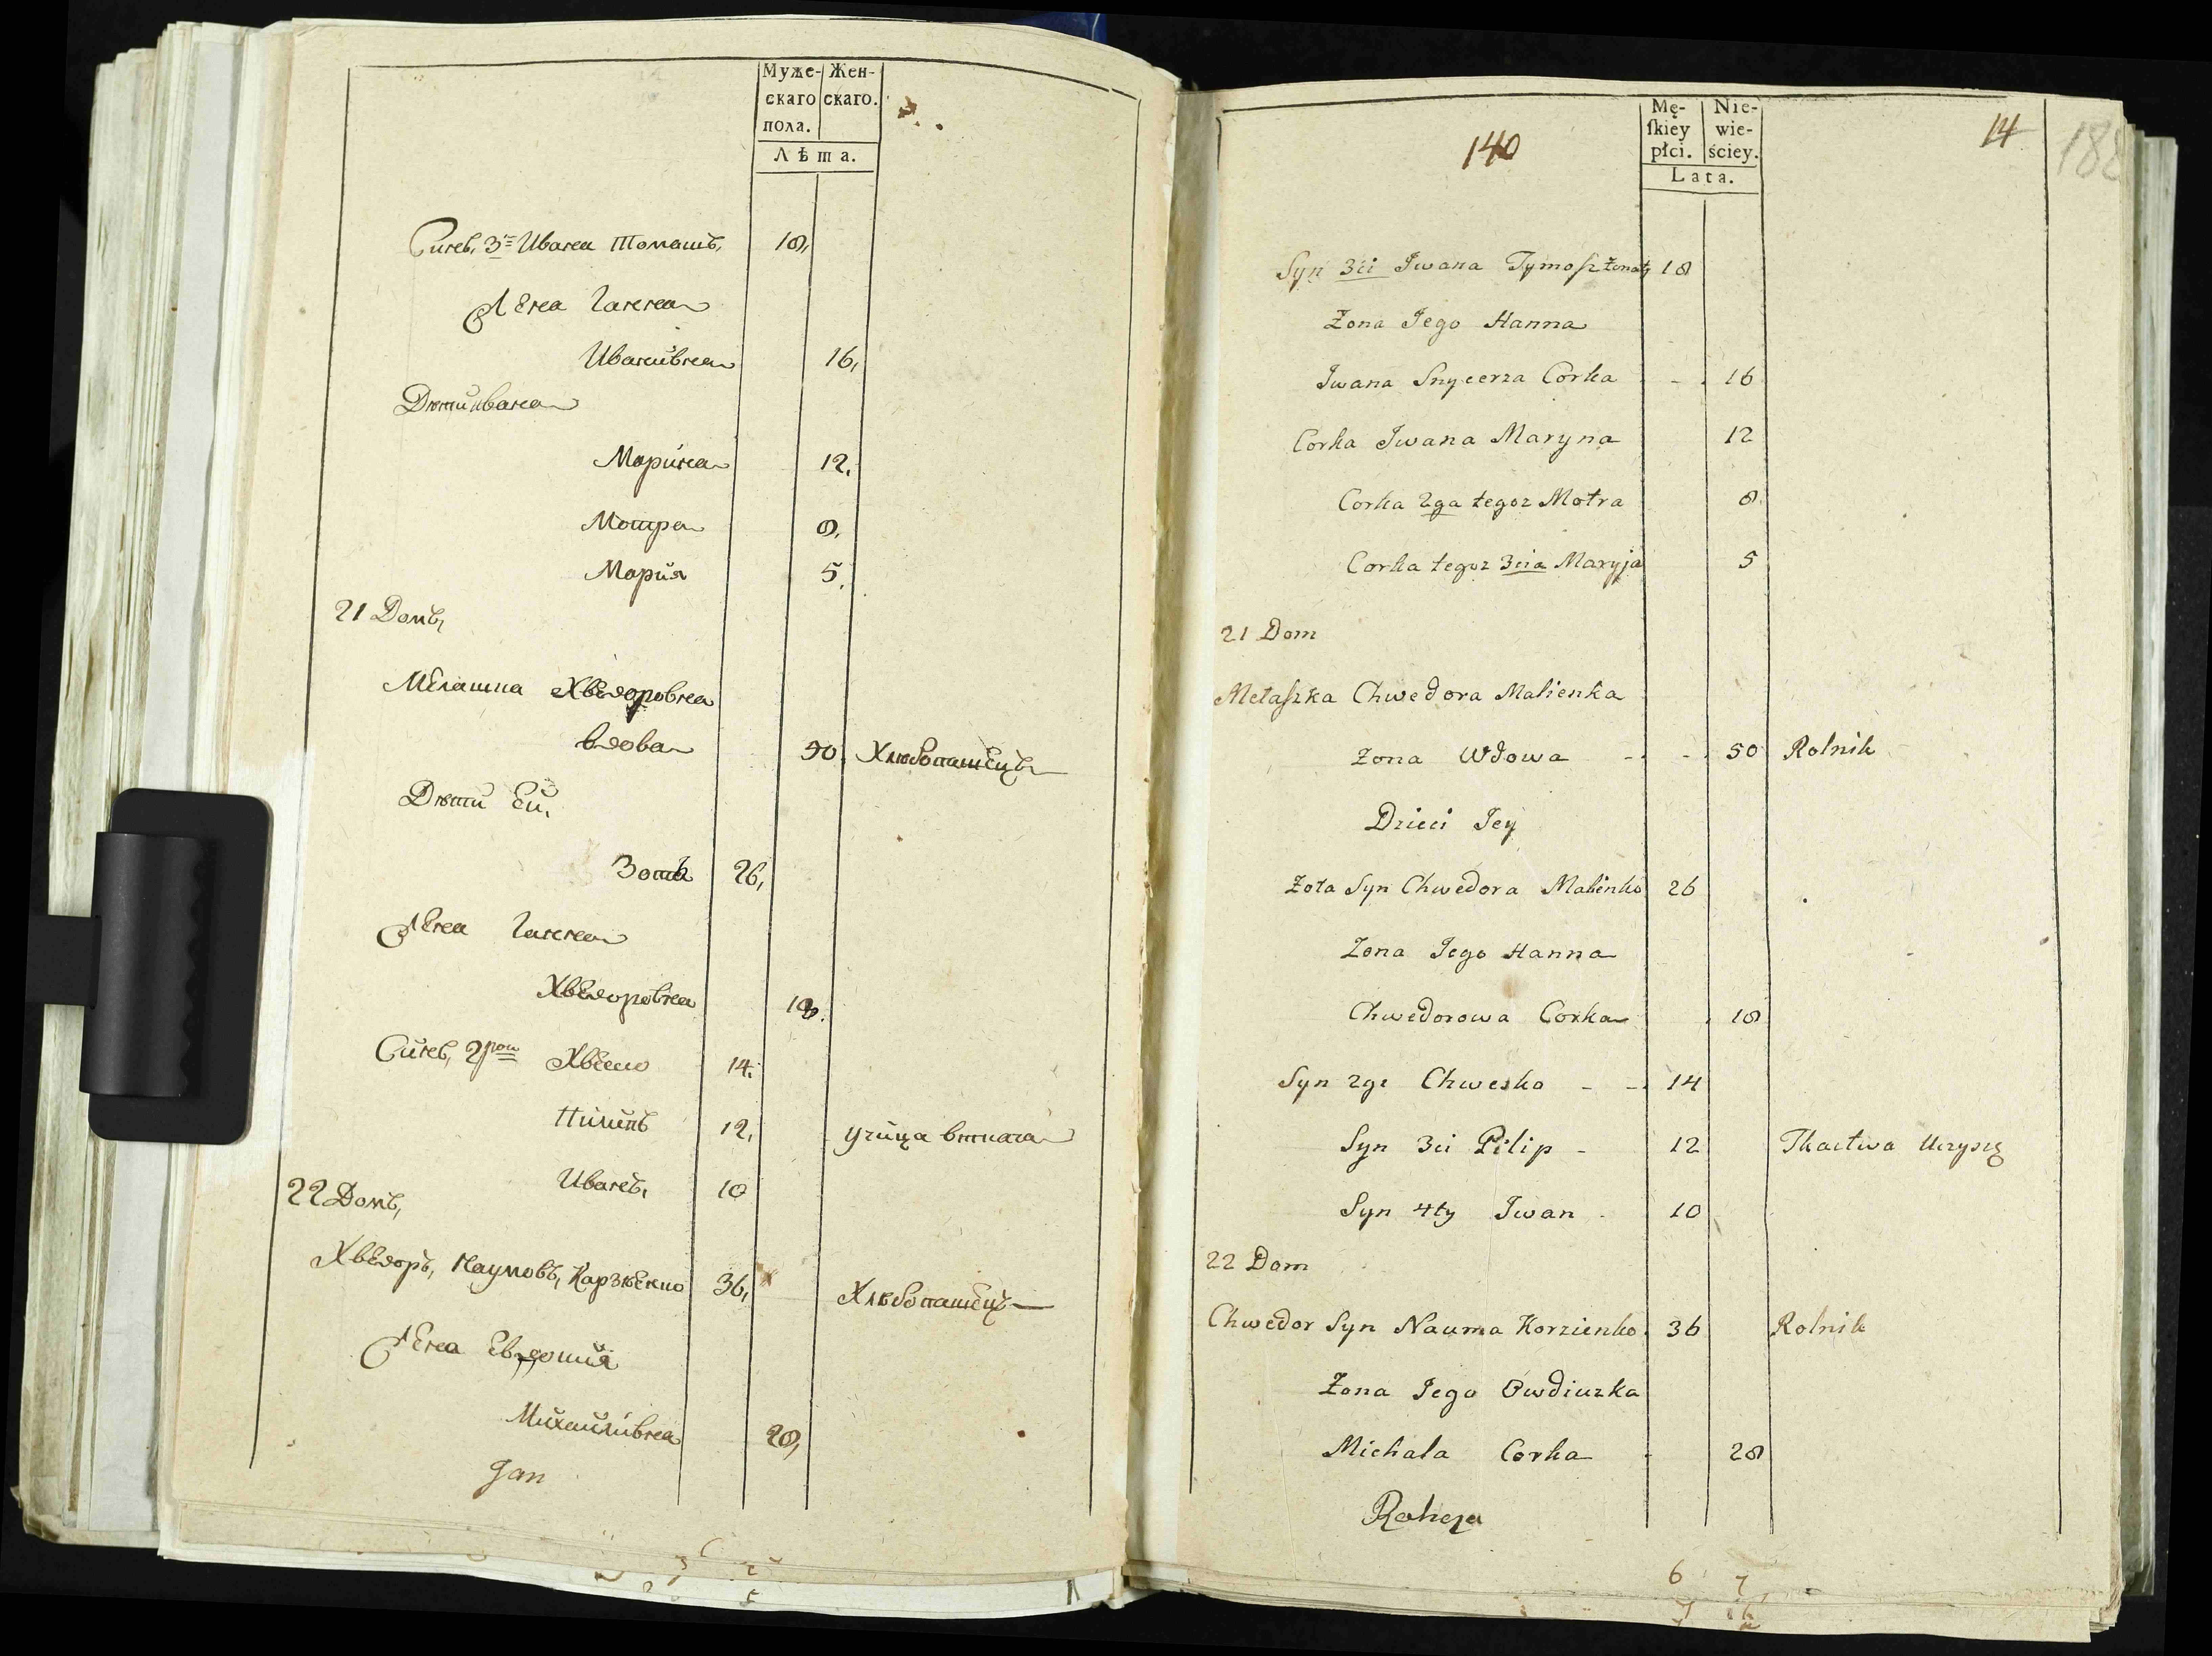 Муже- Жен-
скаго скаго.
пола.
Лѣта.
Синъ, 3й Ивана Томашъ, 18,
Жена Ганна
Иванивна 16,
Дѣти Ивана
Марина 12.
Мотра 8.
Мария 5.
21 Домъ,
Мелашка Хведоровна
вдова 50. Хлѣбопашецъ
Дѣти Ей,
Зотъ 26,
Жена Ганна
Хведоровна 18.
Синъ, 2рой Хвеско 14.
Пилипъ 12, учица вткача
Иванъ, 10
22 Домъ,
Хведоръ, Наумовъ, Карзѣенко 36, Хлѣбопашецъ
Жена Евдокия
Михайливна 28,
Jan
Mę- Nie-
skiey wie-
płci. ściey.
Lata.
140
14
188
Syn 3ci Iwana Tymosz żonaty 18
Zona Jego Hanna
Iwana Snycerza Corka - . 16
Corka Iwana Maryna 12
Corka 2ga tegoz Motra 8
Corka tegoz 3cia Maryja 5
21 Dom
Mełaszka Chwedora Malienka
Zona Wdowa - - . 50 Rolnik
Dzieci Jey
Zota Syn Chwedora Malienko 26
Zona Jego Hanna
Chwedorowa Corka 18
Syn 2gi Chwesko - - 14
Syn 3ci Pilip - 12 Tkactwa Uczy się
Syn 4ty Iwan . 10
22 Dom
Chwedor Syn Nauma Korzienko. 36 Rolnik
Zona Jego Owdiuzka
Michala Corka 28
6 7